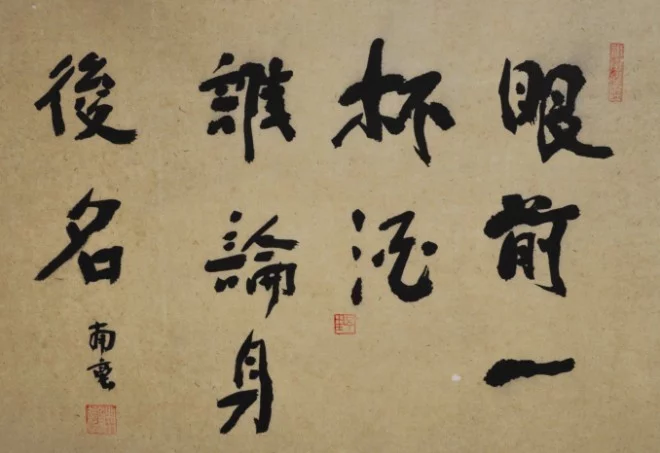 眼前一
杯酒
誰論身
後名
南